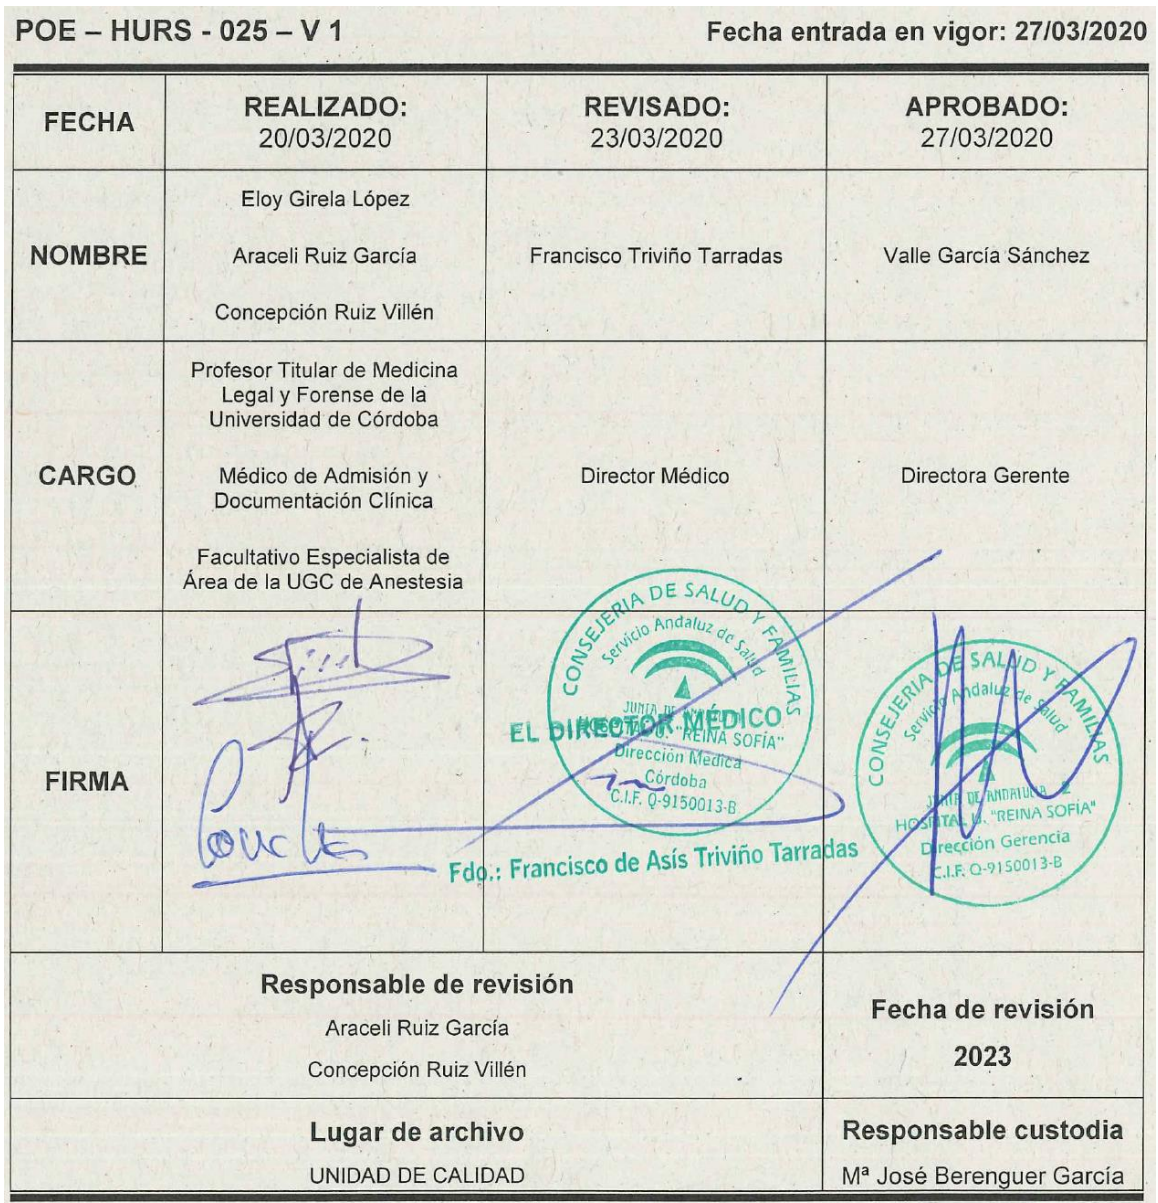 POE – HURS - 025 – V 1
Fecha entrada en vigor: 27/03/2020
FECHA
REALIZADO:
20/03/2020
REVISADO:
23/03/2020
APROBADO:
27/03/2020
NOMBRE
Eloy Girela López
Araceli Ruiz García
Concepción Ruiz Villén
Francisco Triviño Tarradas
Valle García Sánchez
CARGO
Profesor Titular de Medicina
Legal y Forense de la
Universidad de Córdoba
Médico de Admisión y
Documentación Clínica
Facultativo Especialista de
Área de la UGC de Anestesia
Director Médico
Directora Gerente
FIRMA
CONSEJERIA DE SALUD Y FAMILIAS
Servicio Andaluz de Salud
EL DIRECTOR MÉDICO
"REINA SOFÍA"
Dirección Medica
Córdoba
C.I.F. Q-9150013-B
Fdo.: Francisco de Asís Triviño Tarradas
CONSEJERIA DE SALUD Y FAMILIAS
Servicio Andaluz de Salud
JUNTA DE ANDALUCIA
HOSPITAL U. "REINA SOFÍA"
Dirección Gerencia
C.I.F. Q-9150013-B
Responsable de revisión
Araceli Ruiz García
Concepción Ruiz Villén
Fecha de revisión
2023
Lugar de archivo
UNIDAD DE CALIDAD
Responsable custodia
Mª José Berenguer García